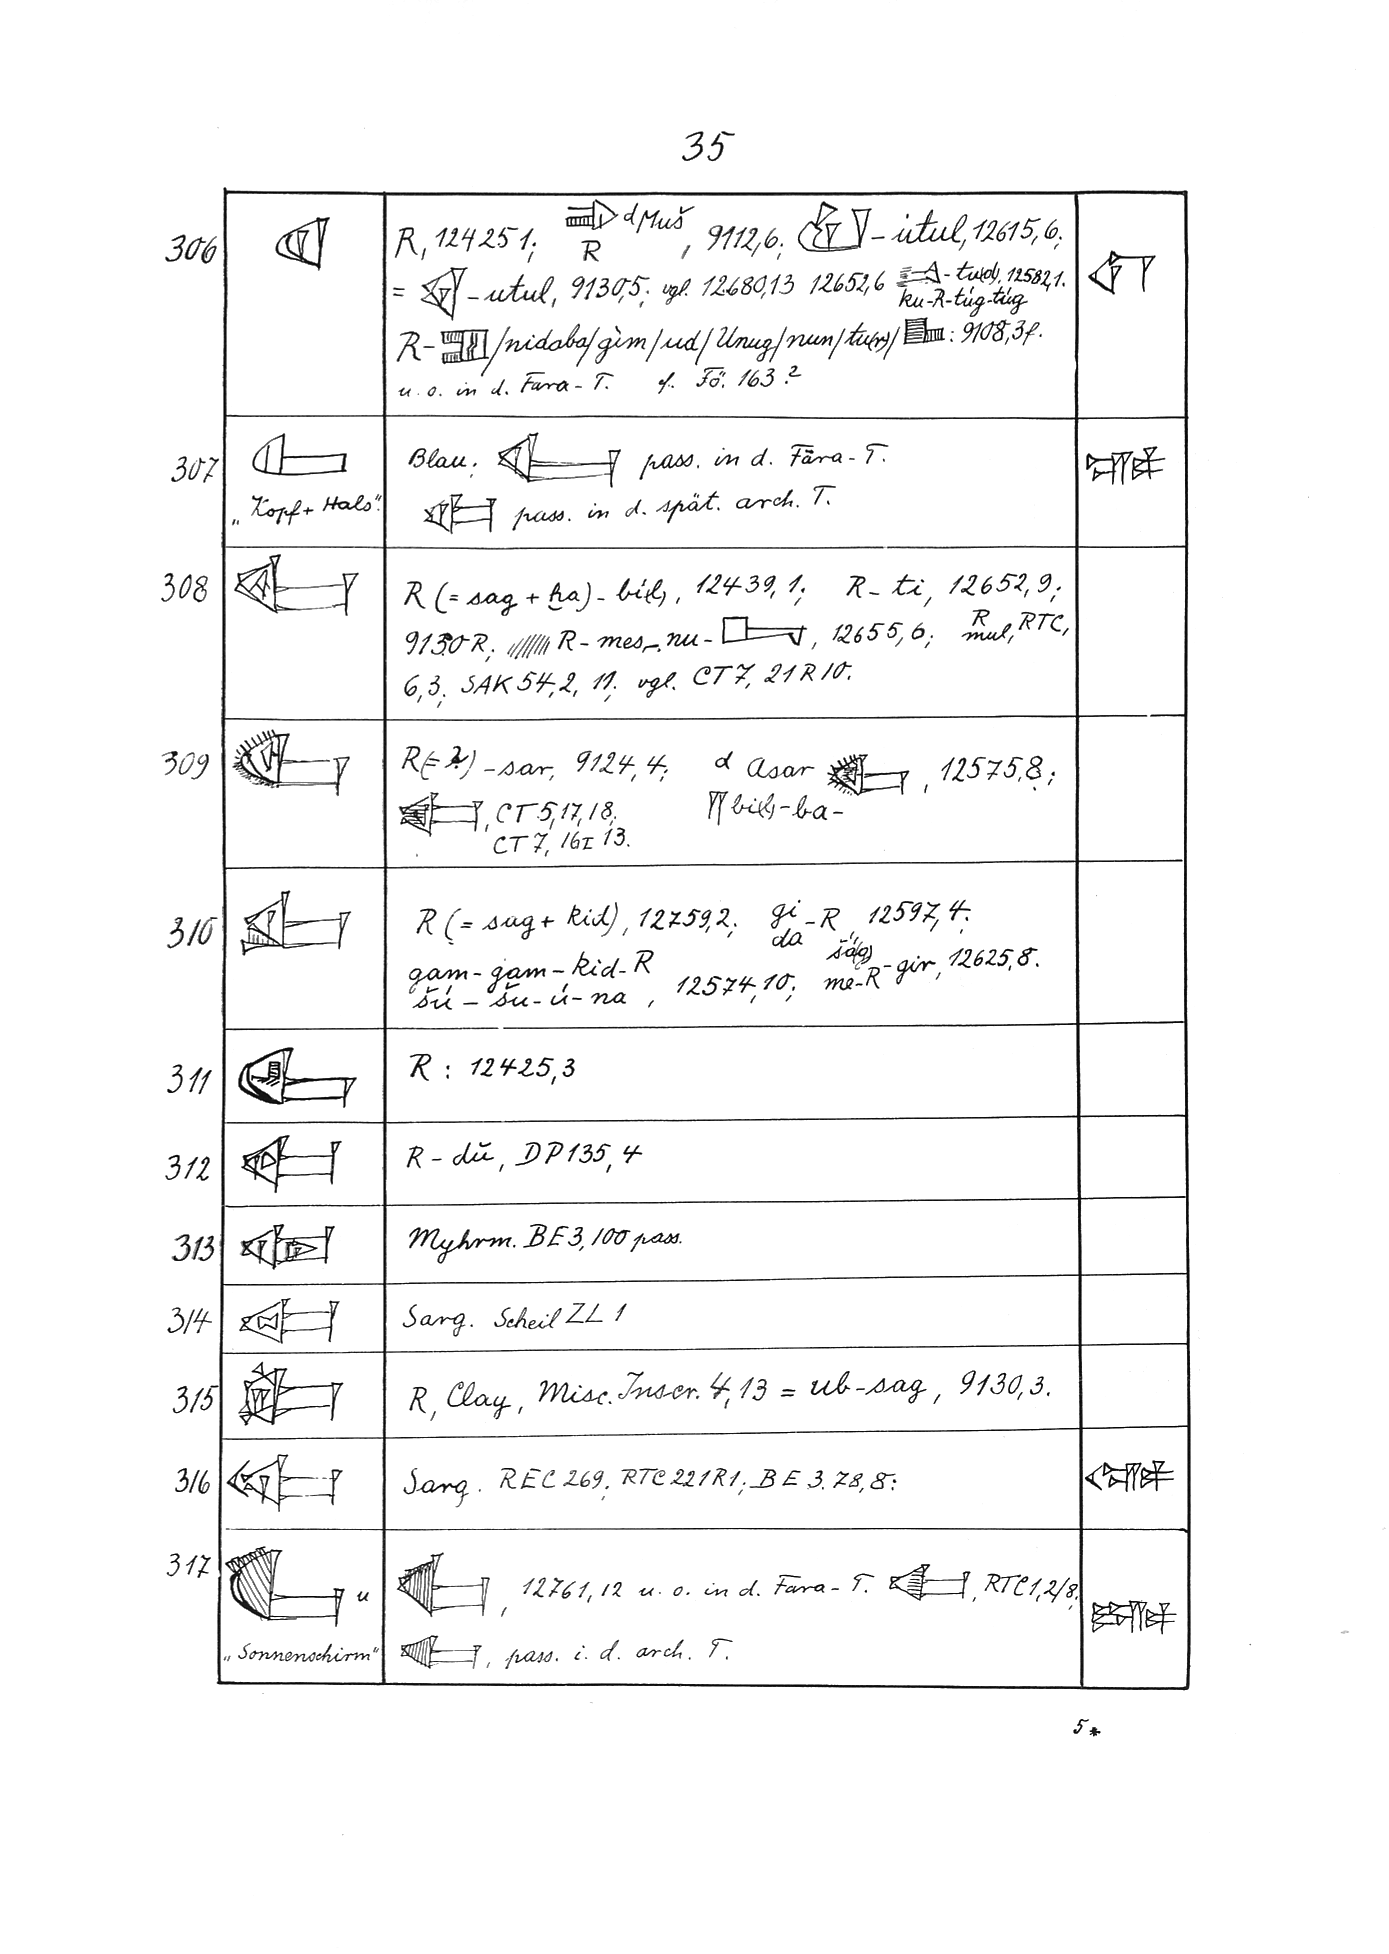 35
306
R, 12425 1; R dMuš, 9112,6; -utul, 12615,6;
= -utul, 9130,5; vgl. 12680,13 12652,6 -tu(d), 12582,1.
ku-R-túg-túg
R- /nidaba/gìm/ud/Unug/nun/tu(r)/ : 9108,3f.
u. o. in d. Fara-T. cf. Fö. 163 ?
307
Blau; pass. in d. Fāra-T.
„Kopf + Hals“.
pass. in d. spät. arch. T.
308
R (= sag + ḫa) - bi(l), 12439,1; R - ti, 12652,9;
9130 R; R - mes - nu - , 12655,6; R mul, RTC,
6,3; SAK 54,2, 11; vgl. CT 7, 21 R 10.
309
R(= ?) - sar, 9124,4; d Asar , 12575,8;
, CT 5,17,18; bi(l)-ba-
CT 7, 16 I 13.
310
R (= sag + kid), 12759,2; gi da - R, 12597,4;
gam - gam - kid - R
šú - šu - ú - na , 12574,10; me-R-gir, 12625,8.
311
R : 12425,3
312
R - dŭ, DP 135, 4
313
Myhrm. BE 3, 100 pass.
314
Sarg. Scheil ZL 1
315
R, Clay, Misc. Inscr. 4,13 = ub-sag, 9130,3.
316
Sarg. REC 269; RTC 221 R 1; BE 3. 78, 8:
317
u , 12761,12 u. o. in d. Fara-T. , RTC 1,2/8;
„Sonnenschirm“
, pass. i. d. arch. T.
5*